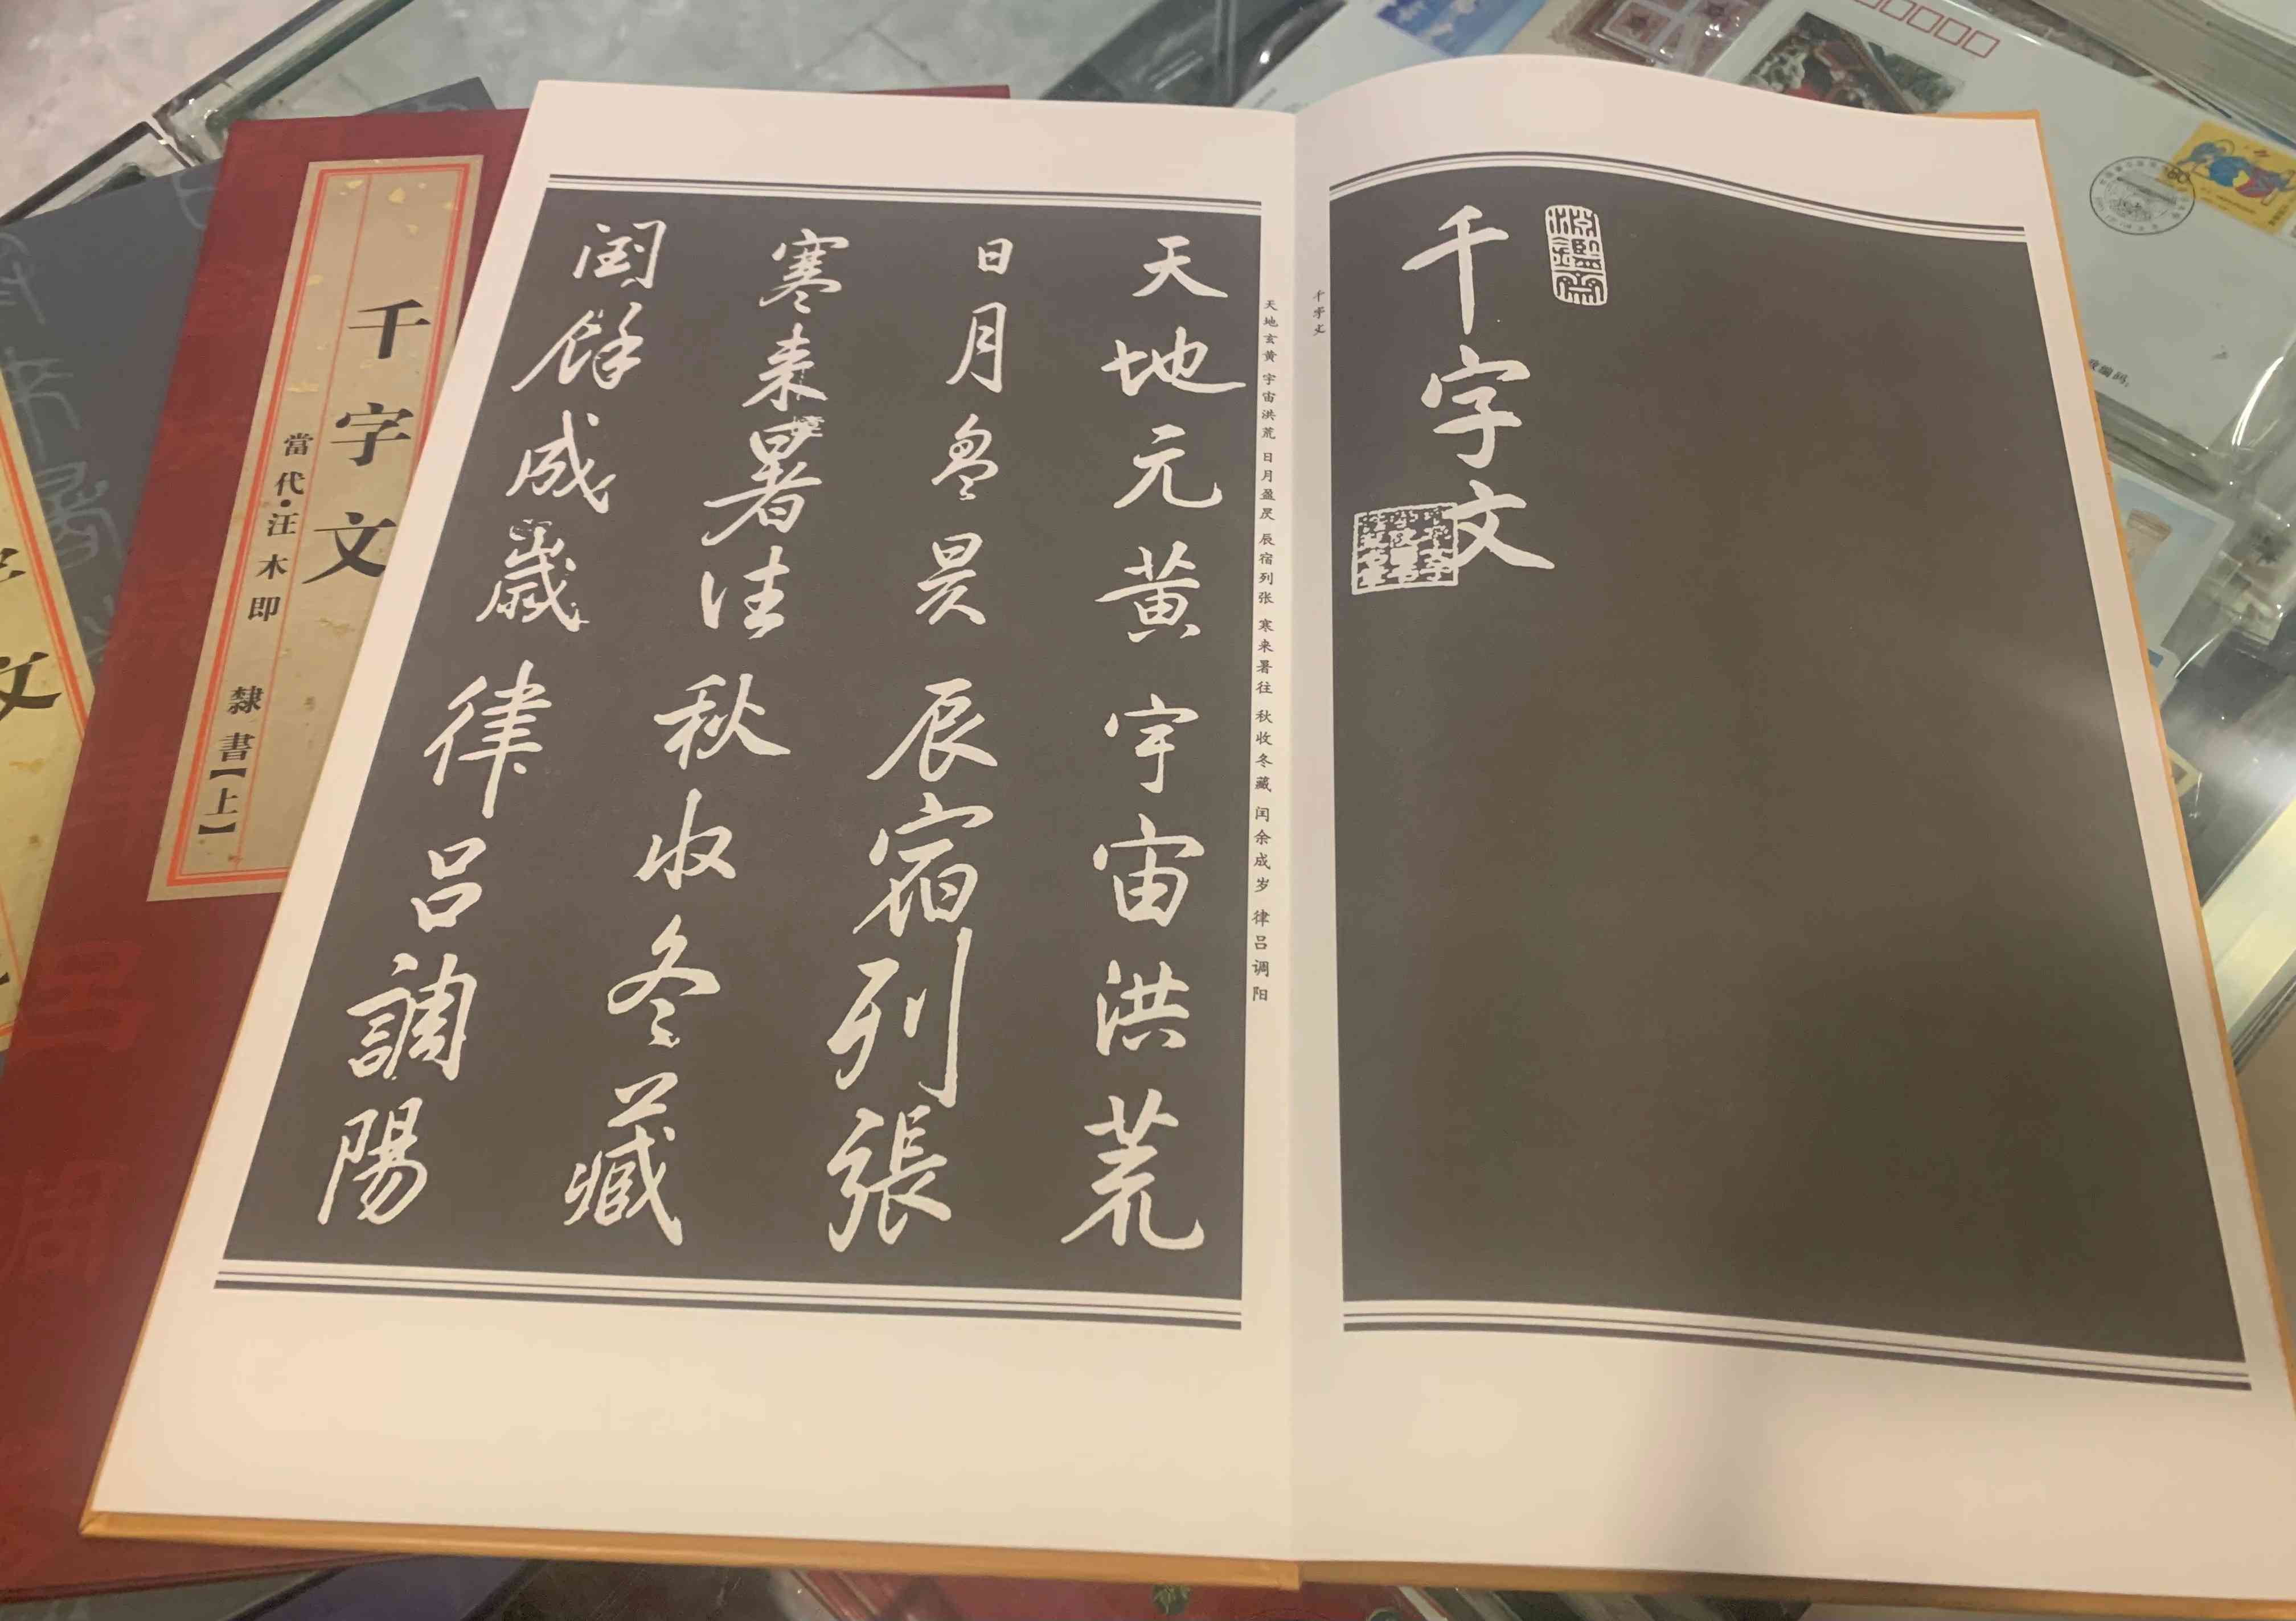 千字文
千字文
天地玄黄 宇宙洪荒 日月盈昃 辰宿列张 寒来暑往 秋收冬藏 闰余成岁 律吕调阳
天地元黄宇宙洪荒
日月盈昃辰宿列張
寒来暑往秋收冬藏
閏餘成歲律呂調陽
千字文
當代·汪木即 隸書【上】
文